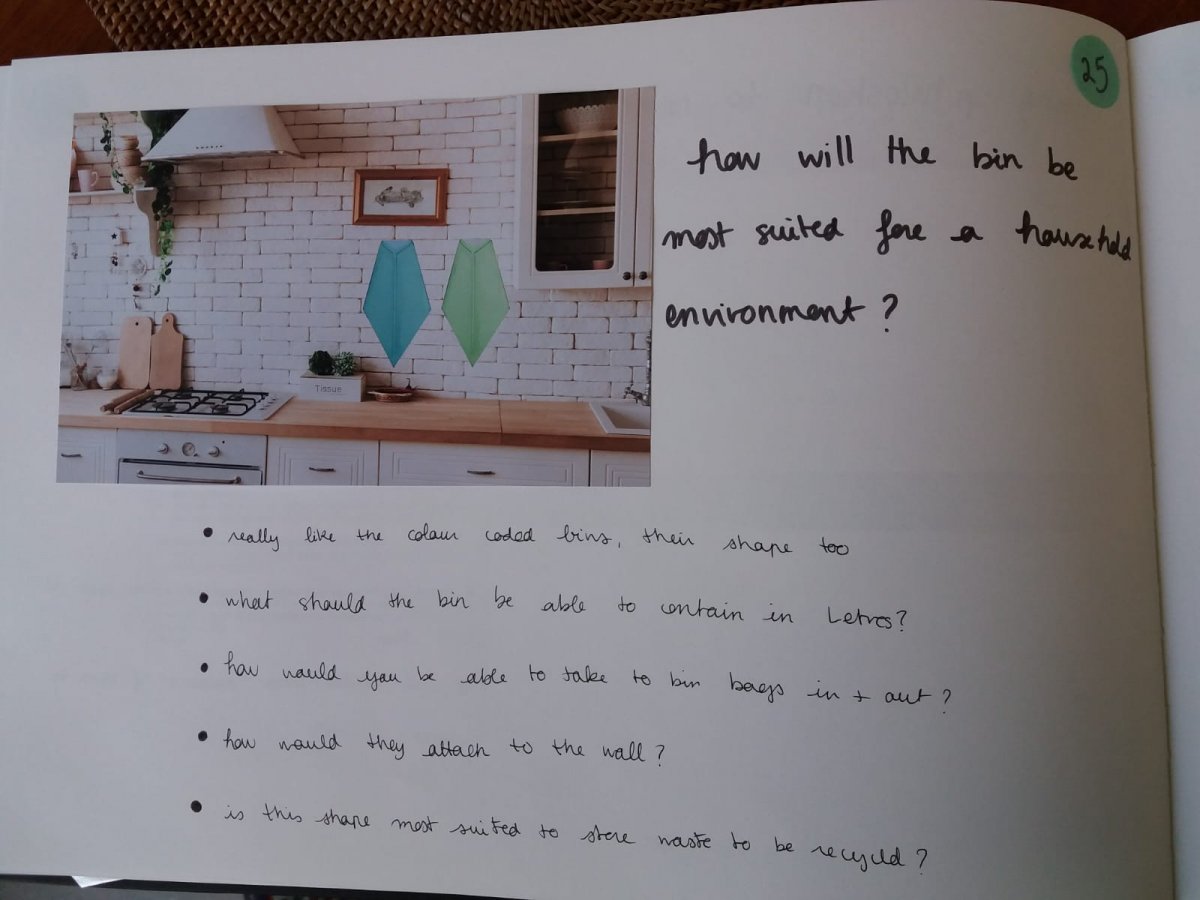 25
how will the bin be
most suited fore a household
environment?
Tissue
• really like the colour coded bins, their shape too
• what should the bin be able to contain in Letres?
• how would you be able to take to bin bags in + out?
• how would they attach to the wall?
• is this shape most suited to store waste to be recycled?